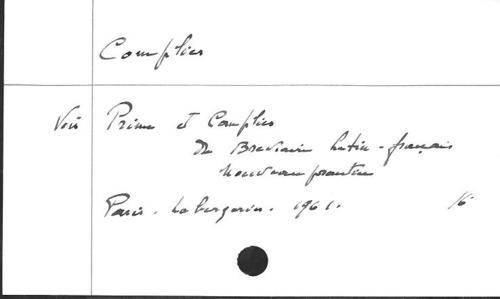 Complies
Voir Prime et Complies
du Breviaire latin-français
nouveau psautier
Paris. Labergerie. 1961. 16